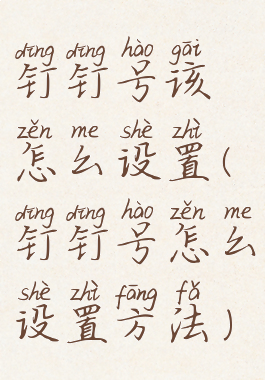 dīng dīng hào gāi
钉钉号该
zěn me shè zhì
怎么设置(
dīng dīng hào zěn me
钉钉号怎么
shè zhì fāng fǎ
设置方法)